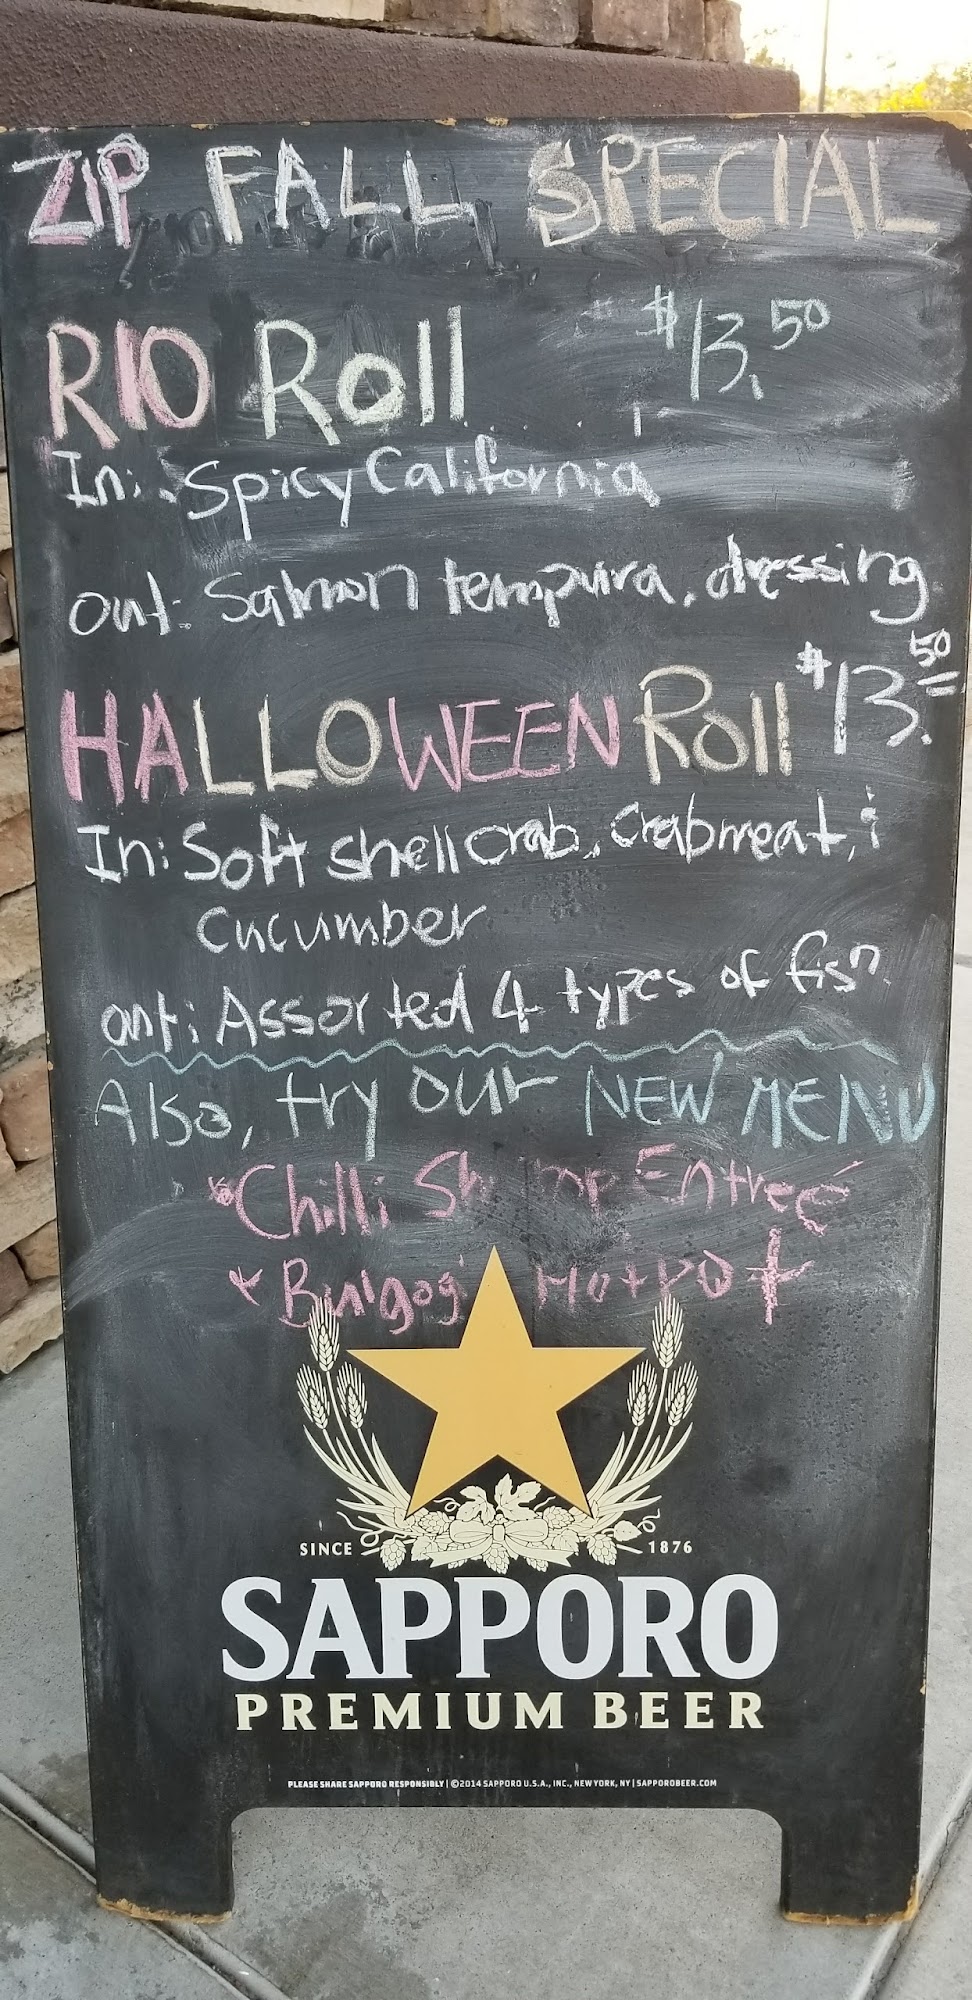 ZIP FALL SPECIAL
RIO Roll $13.50
In: Spicy California
out: Salmon tempura, dressing
HALLOWEEN Roll $13.50
In: Soft shell crab, crabmeat,
cucumber
out: Assorted 4 types of fish
Also, try our NEW MENU
* Chilli Shrimp Entreé
* Bulgogi Hotpot
SINCE 1876
SAPPORO
PREMIUM BEER
PLEASE SHARE SAPPORO RESPONSIBLY | ©2014 SAPPORO U.S.A., INC., NEW YORK, NY | SAPPOROBEER.COM